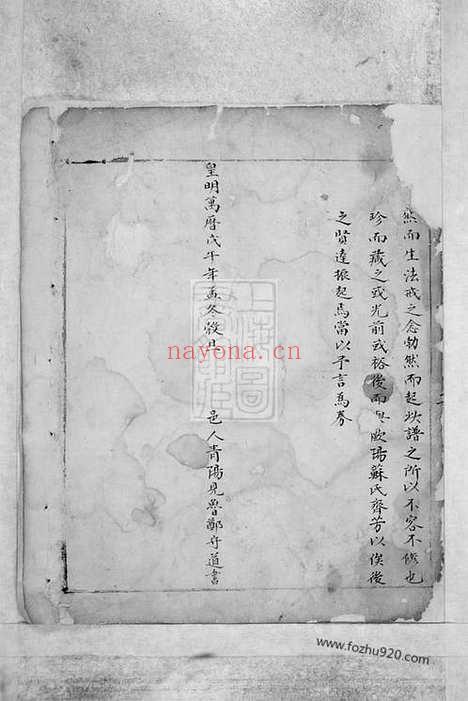 然而生法戒之念勃然而起此譜之所以不容不修也
珍而藏之或光前或裕後而與歐陽蘇氏齊芳以俟後
之賢達振起焉當以予言為券
皇明萬曆戊午年孟冬穀旦
邑人青陽見魯鄒守道書
nayona.cn
www.fozhu920.com